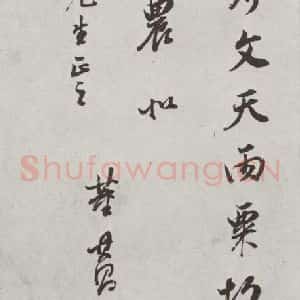 文天雨粟
農似
先生正之
董其昌
Shufawang.CN